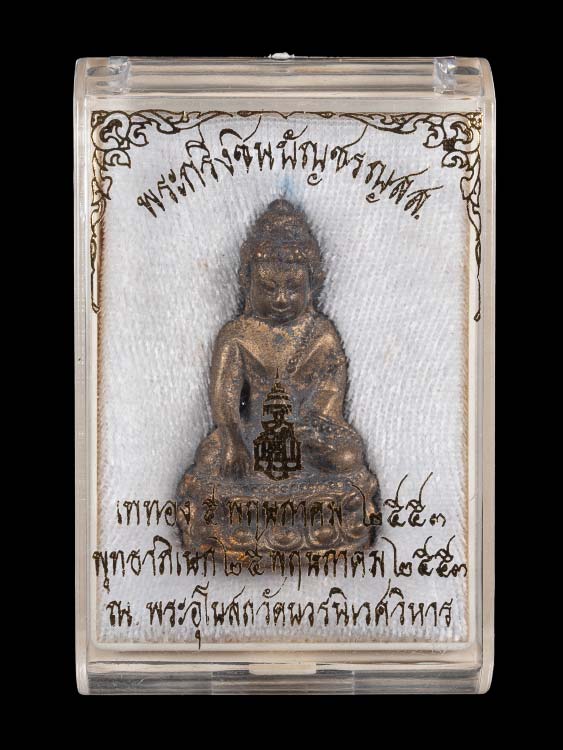 พระกริ่งชินบัญชรญสส.
เททอง ๕ พฤษภาคม ๒๕๕๓
พุทธาภิเษก ๒๕ พฤษภาคม ๒๕๕๓
ณ. พระอุโบสถวัดบวรนิเวศวิหาร